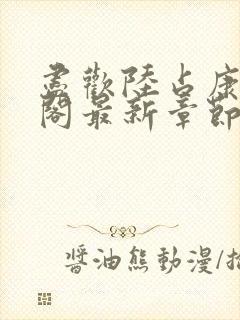 盡歡陸占康
閣最新章節
醬油熊動漫/